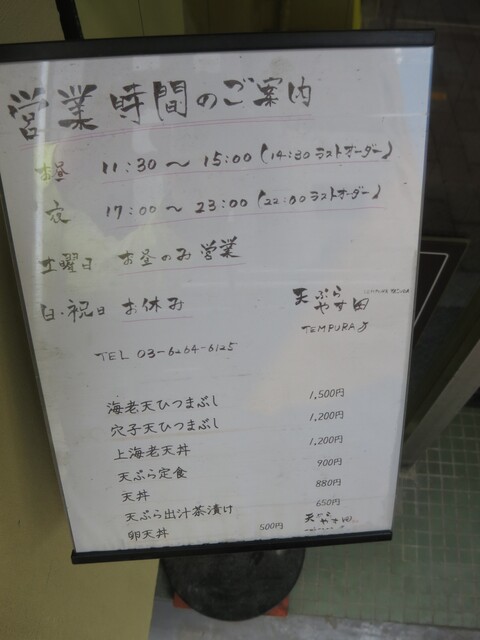 営業時間のご案内
お昼 11:30 ～ 15:00 (14:30 ラストオーダー)
夜 17:00 ～ 23:00 (22:00 ラストオーダー)
土曜日 お昼のみ営業
日・祝日 お休み
天ぷら
やす田
TEMPURA
TEL 03-6264-6125
海老天ひつまぶし 1,500円
穴子天ひつまぶし 1,200円
上海老天丼 1,200円
天ぷら定食 900円
天丼 880円
天ぷら出汁茶漬け 650円
卵天丼 500円
天ぷら
やす田